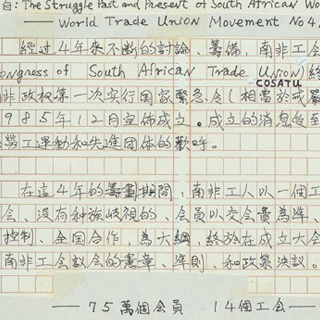 自: The Struggle Past and Present of South African Wo
— World Trade Union Movement No 4,
經过4年來不断的討論、籌備，南非工会
Congress of South African Trade Union)終
COSATU
非政权第一次实行国家緊急令(相當於戒嚴
985年12月宣佈成立。成立的消息後至
勞工運動和先進团体的歡呼。
在這4年的籌劃期間，南非工人以一個工
会、沒有种族歧視的、会員以交会費為準、
控制、全国合作，為大綱，終於在成立大会
南非工会議会的憲章、準則、和政策決議。
— 75萬個会員 14個工会 —